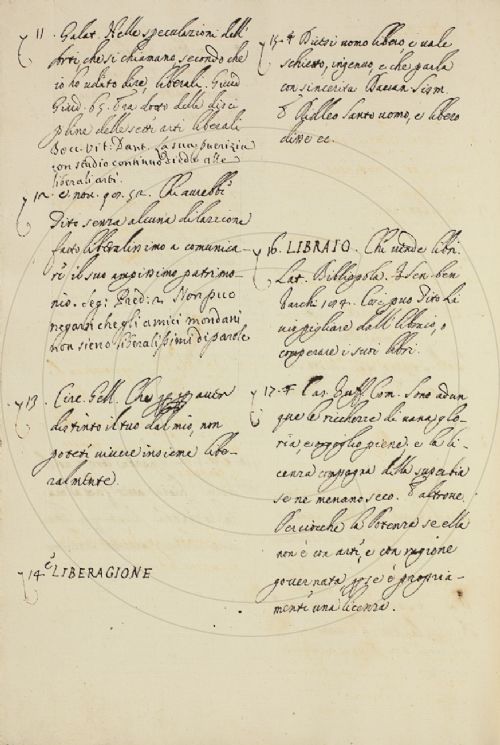 11. Galat. Nelle speculazioni dell'
Arti, che si chiamano, secondo che
io ho udito dire, liberali. Guid
Giud. 65. Era dotto delle disci
pline delle sette arti liberali
Bocc. vit: Dant. La sua puerizia
con studio continuo diede alle
liberali arti.
12. e nov. 98. 52. Chi avrebbe
Tito senza alcuna dilazione
fatto liberalissimo a comunica-
re il suo ampissimo patrimo-
nio. Seg: Pred: 2. Non può
negarsi che gli amici mondani
non sieno liberalissimi di parole
13. Circ. Gell. Che avete
distinto il tuo dal mio, non
potete vivere insieme libe-
ralmente.
14 LIBERAGIONE
15. Dicesi uomo libero, e vale
schietto, ingenuo, e che parla
con sincerità
Santo uomo, e libero
disse ec.
16. LIBRAIO. Chi vende libri.
Lat. Bibliopola. Sen. ben
Varch. 174. Tito Li
vio pigliare dall' libraio, o
comperare i suoi libri.
17. Com. Sono adun
que le ricchezze di vana glo-
ria, e orgoglio piene e la li-
cenza compagna della superbia
se ne menano seco. E altrove
Perciocchè la Potenza se ella
non è con arte, e con ragione
governata è propria-
mente una licenza.